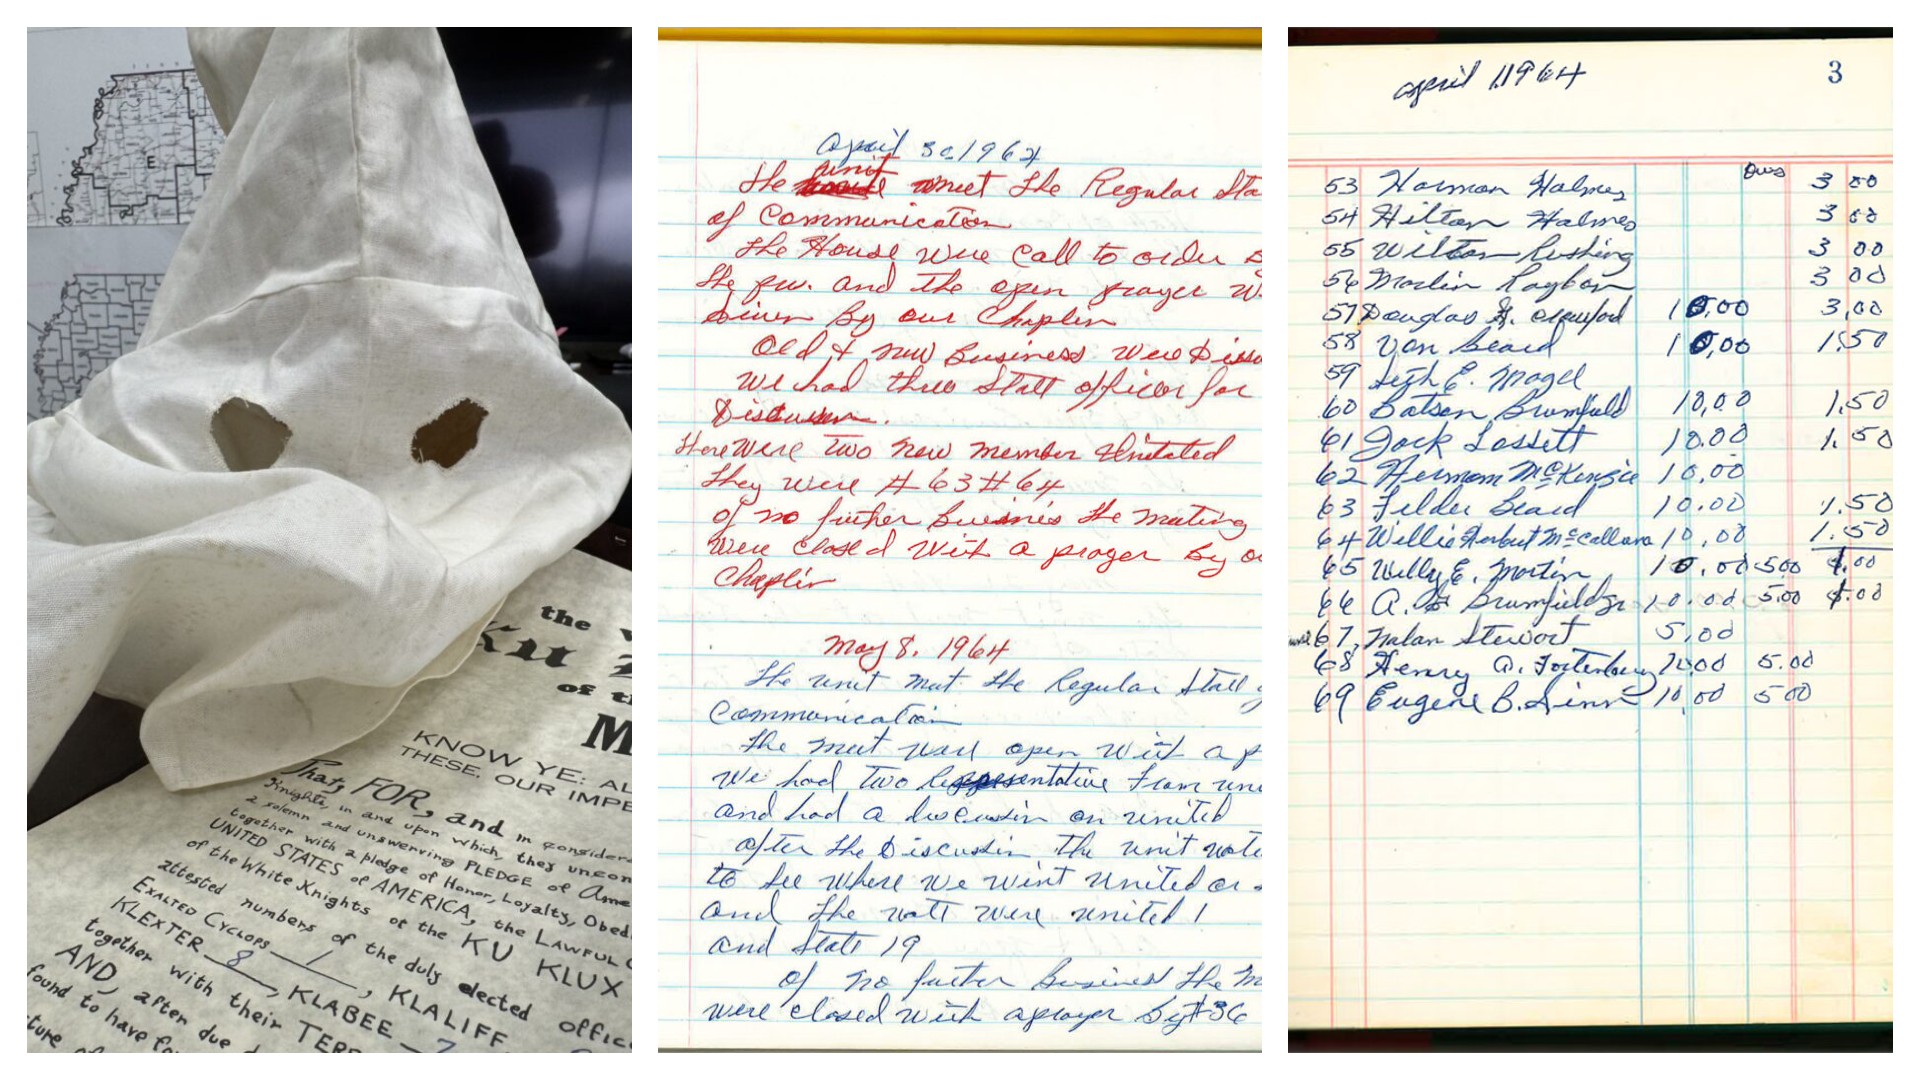 E
the
Ku
of th
M
KNOW YE: AL
THESE, OUR IMPE
That, FOR, and in consider
Knights in and upon which, they uncon
a solemn and unswerving PLEDGE of Ame
together with a pledge of Honor, Loyalty, Obed
UNITED STATES of AMERICA, the LAWFUL
of the White Knights of the KU KLUX
attested numbers of the duly elected offic
EXALTED CYCLOPS 1, KLALIFF
KLEXTER 8, KLABEE 7
together with their TERR
AND, after due
found to have
ture
april 30 1964
the unit meet the Regular Sta
of Communication
the House were call to order
the pw. and the open prayer w
Given By our Chaplin
Old & new Business were Discu
we had three Statt officer for
Discussion.
there were two new member Unitated
they were #63 #64
of no futher Buisness the meeting
were closed with a prayer by o
Chaplin
May 8, 1964
the unit met the Regular Statt
Communication
the meet was open with a p
we had two Representative from uni
and had a discussin on united
after the Discussin the unit vote
to see where we went united or
and the vott were united 1
and Statt 19
of no futher Business the m
were closed with a prayer by #36
april 1, 1964 3
Dues
53 Harmon Halmes 3 00
54 Hilton Halmes 3 00
55 Wilton Rushing 3 00
56 Marlin Raybon 3 00
57 Douglas Crawford 10,00 3,00
58 Van Beard 10,00 1.50
59 Seth E. Magee
60 Batson Brumfield 10,00 1.50
61 Jack Lossett 10.00 1.50
62 Hermon McKenzie 10.00
63 Felder Beard 10.00 1.50
64 Willie Herbert McCallum 10,00 1.50
65 Willy E. Martin 10.00 5.00 1.00
66 A. Brumfield Jr 10.00 5.00 1.00
67, Nolan Stewart 5,00
68 Henry A. Fortenbury 10.00 5.00
69 Eugene B. Sinn 10,00 5 00